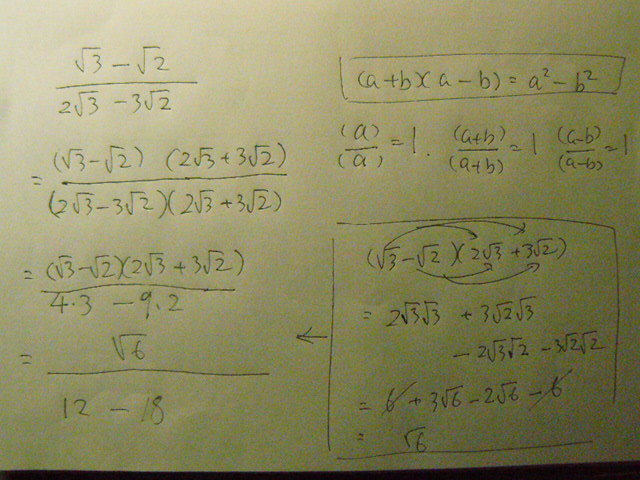 (√3 - √2) / (2√3 - 3√2)
= (√3-√2) (2√3+3√2) / (2√3-3√2)(2√3+3√2)
= (√3-√2)(2√3+3√2) / 4·3 - 9·2
= √6 / 12 - 18
(a+b)(a-b) = a² - b²
(a)/(a) = 1. (a+b)/(a+b) = 1 (a-b)/(a-b) = 1
(√3-√2)(2√3+3√2)
= 2√3√3 + 3√2√3
- 2√3√2 - 3√2√2
= 6 + 3√6 - 2√6 - 6
= √6
←